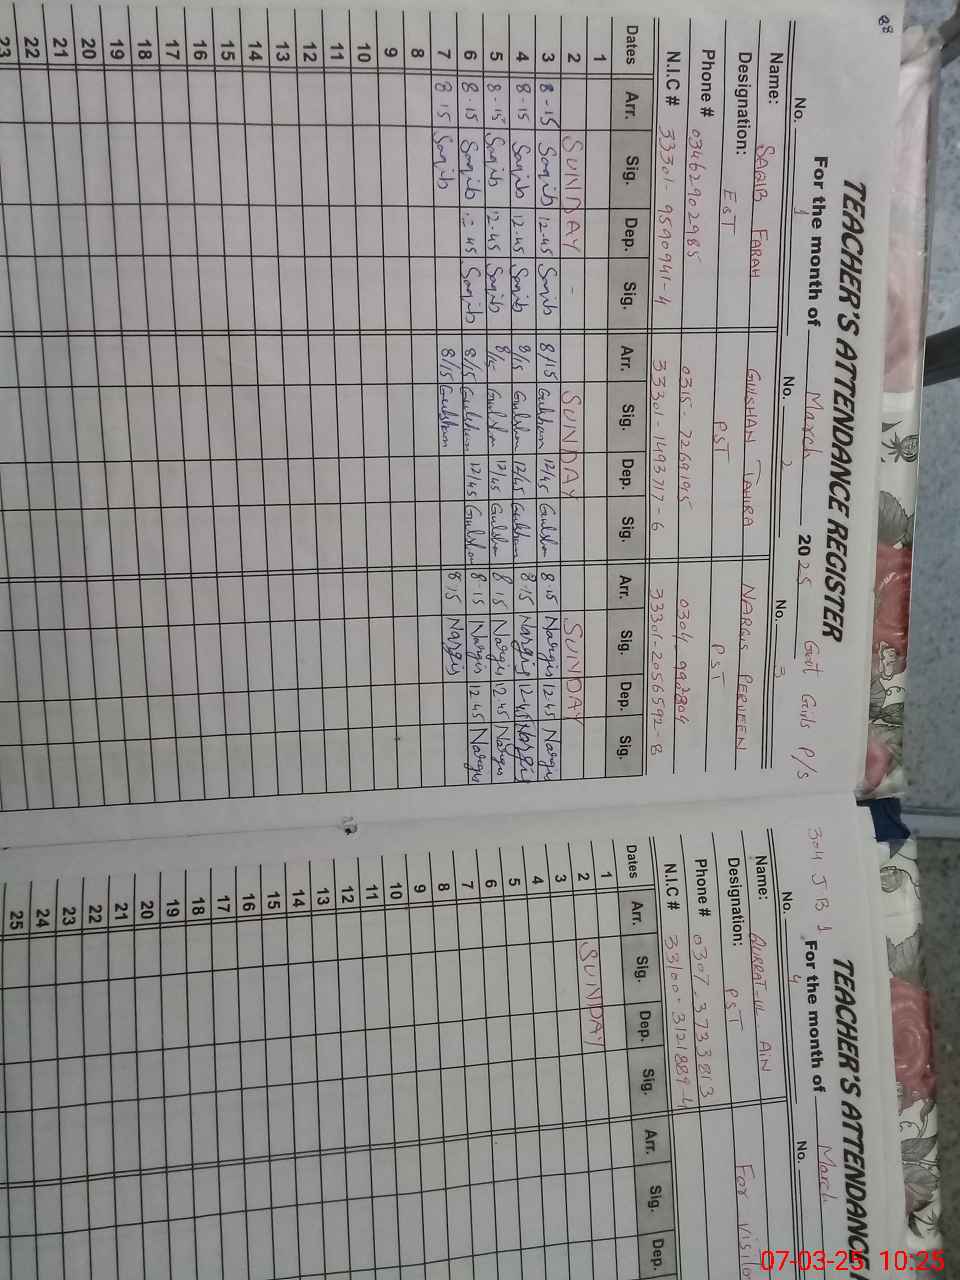 88
TEACHER'S ATTENDANCE REGISTER
For the month of March 2025 Govt Girls P/S
No. 1 No. 2 No. 3
Name: SAQIB FARAH GULSHAN TAHIRA NARGIS PERVEEN
Designation: EST PST PST
Phone # 03462902985 0315-7269195
N.I.C # 33301-9590941-4 33301-1493717-6 33301-2056592-8
Dates Arr. Sig. Dep. Sig. Arr. Sig. Dep. Sig. Arr. Sig. Dep. Sig.
1
2 SUNDAY - SUNDAY SUNDAY
3 8-15 Saqib 12.45 Saqib 8/15 Gulshan 12/45 Gulshan 8.15 Nargis 12.45 Nargis
4 8-15 Saqib 12.45 Saqib 8/15 Gulshan 12/45 Gulshan 8.15 Nargis 12.45 Nargis
5 8-15 Saqib 12.45 Saqib 8/15 Gulshan 12/45 Gulshan 8.15 Nargis 12.45 Nargis
6 8.15 Saqib 45 Saqib 8/15 Gulshan 12/45 Gulshan 8.15 Nargis 12.45 Nargis
7 8.15 Saqib 8/15 Gulshan 8.15 Nargis
8
9
10
11
12
13
14
15
16
17
18
19
20
21
22
23
304 JB 1
TEACHER'S ATTENDANCE
For the month of March
No. 4 No.
Name: QURRAT-UL-AIN For Visitor
Designation: PST
Phone # 0307-3733813
N.I.C # 33100-3121889-4
Dates Arr. Sig. Dep. Sig. Arr. Sig. Dep.
1
2 SUNDAY
3
4
5
6
7
8
9
10
11
12
13
14
15
16
17
18
19
20
21
22
23
24
25
07-03-25 10:25